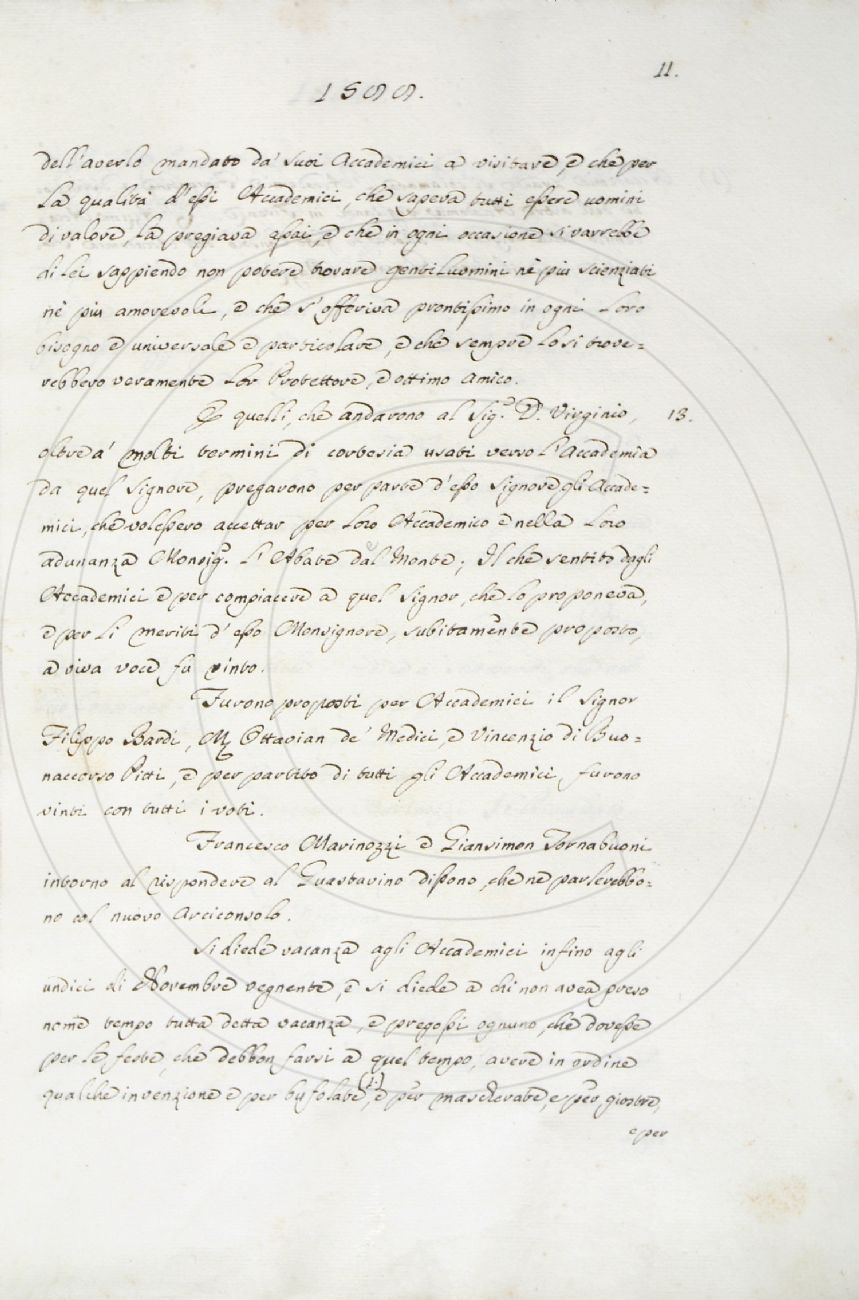 11.
1588.
dell'averlo mandato da' suoi Accademici a visitare, e che per
la qualità d'essi Accademici, che sapeva tutti essere uomini
di valore, la pregiava assai, e che in ogni occasione si varrebbe
di lei sappiendo non potere trovare gentiluomini nè più scienziati
nè più amorevoli, e che s'offeriva prontissimo in ogni loro
bisogno e universale e particolare, e che sempre lo si trove=
rebbero veramente lor Protettore, e ottimo amico.
E quelli, che andarono al Sig.r D. Virginio, 13.
oltre a' molti termini di cortesia usati verso l'Accademia
da quel Signore, pregarono per parte d'esso Signore gli Accade=
mici, che volessero accettar per loro Accademico e nella loro
adunanza Monsig.r l'Abate dal Monte; Il che sentito dagli
Accademici e per compiacere a quel Signor, che lo proponeva,
e per li meriti d'esso Monsignore, subitamente proposto,
a viva voce fu vinto.
Furono proposti per Accademici il Signor
Filippo Bardi, M. Ottavian de' Medici, e Vincenzio di Buo=
naccorso Pitti, e per partito di tutti gli Accademici, furono
vinti con tutti i voti.
Francesco Marinozzi e Giansimon Tornabuoni
intorno al rispondere al Guastavino dissono, che ne parlerebbo=
no col nuovo Arciconsolo.
Si diede vacanza agli Accademici infino agli
undici di Novembre vegnente, e si diede a chi non avea preso
nome tempo tutta detta vacanza, e pregossi ognuno, che dovesse
per le feste, che debbon farsi a quel tempo, avere in ordine
qualche invenzione e per bufolate (1.), e per mascherate, e per giostre,
e per